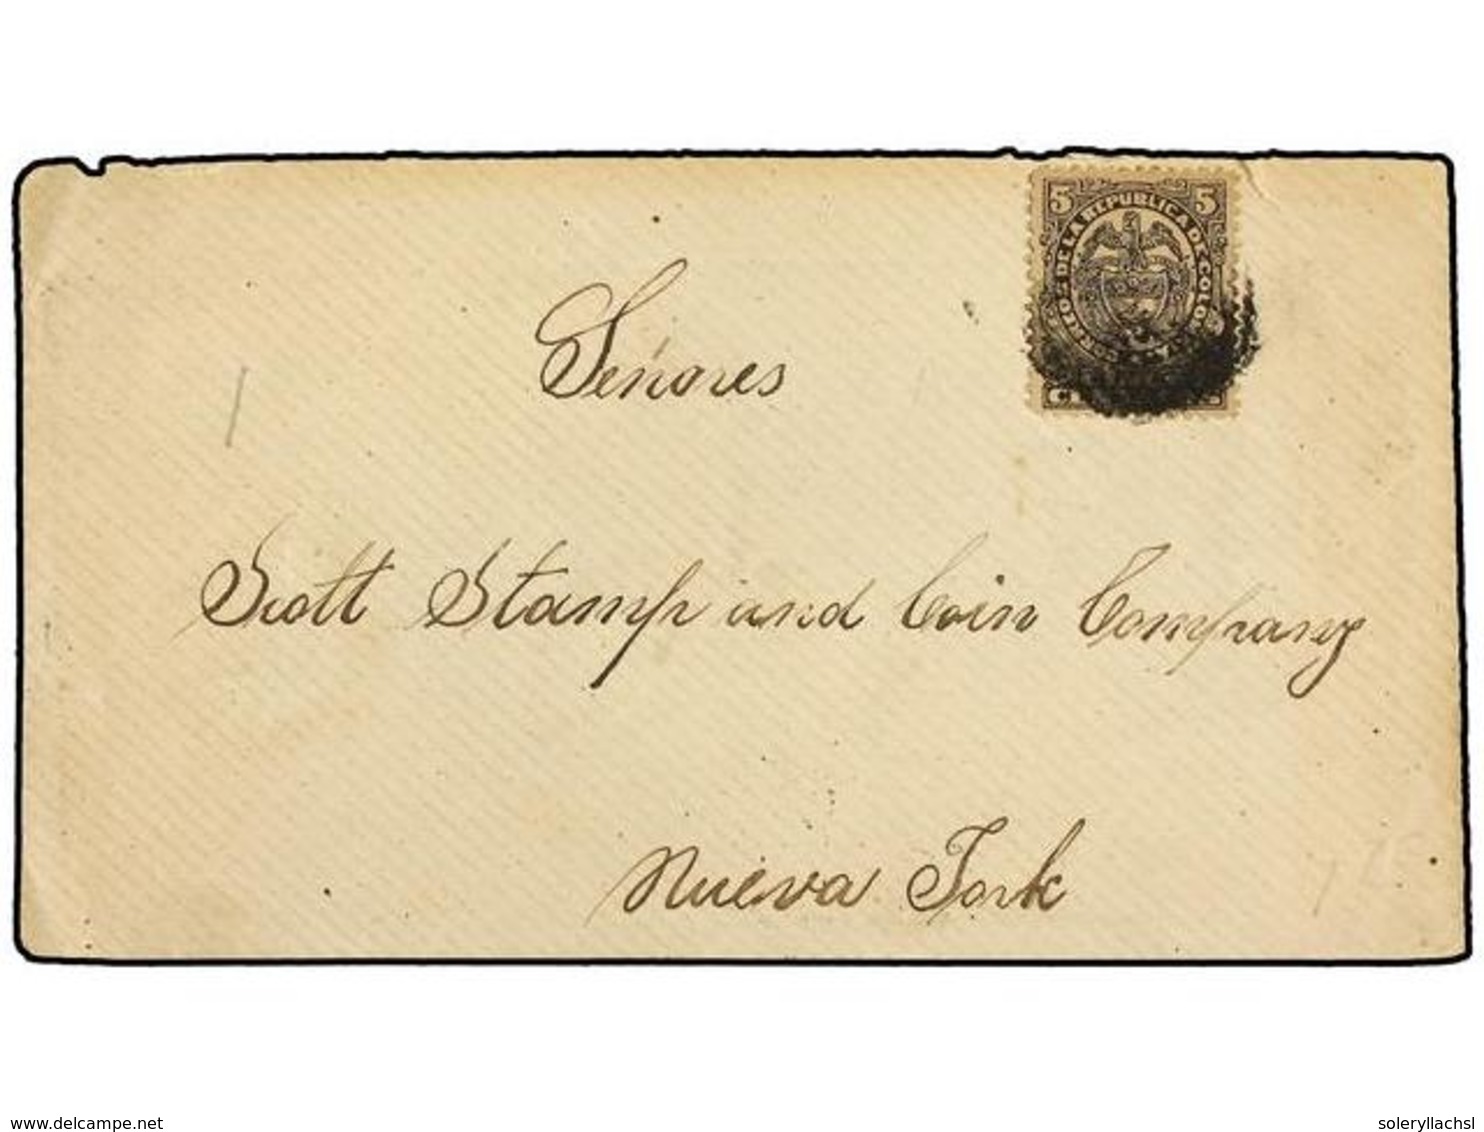 5 CORREOS DE LA REPUBLICA DE COLOMBIA 5
Señores
Scott Stamp and Coin Company
Nueva York
delcampe.net
soleryllachsl